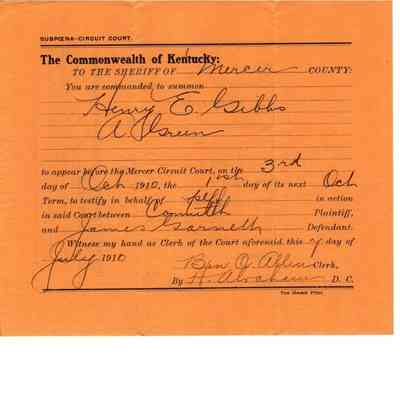 SUBPŒNA—CIRCUIT COURT.
The Commonwealth of Kentucky:
TO THE SHERIFF OF Mercer COUNTY:
You are commanded to summon
Henry E. Gibbs
A Green
to appear before the Mercer Circuit Court, on the 3rd
day of Oct 1910, the 1st day of its next Oct
Term, to testify in behalf of plff in action
in said Court between Commlth Plaintiff,
and James Garnett Defendant.
Witness my hand as Clerk of the Court aforesaid, this day of
July 1910
Ben Allin Clerk,
By H. Abraham D. C.